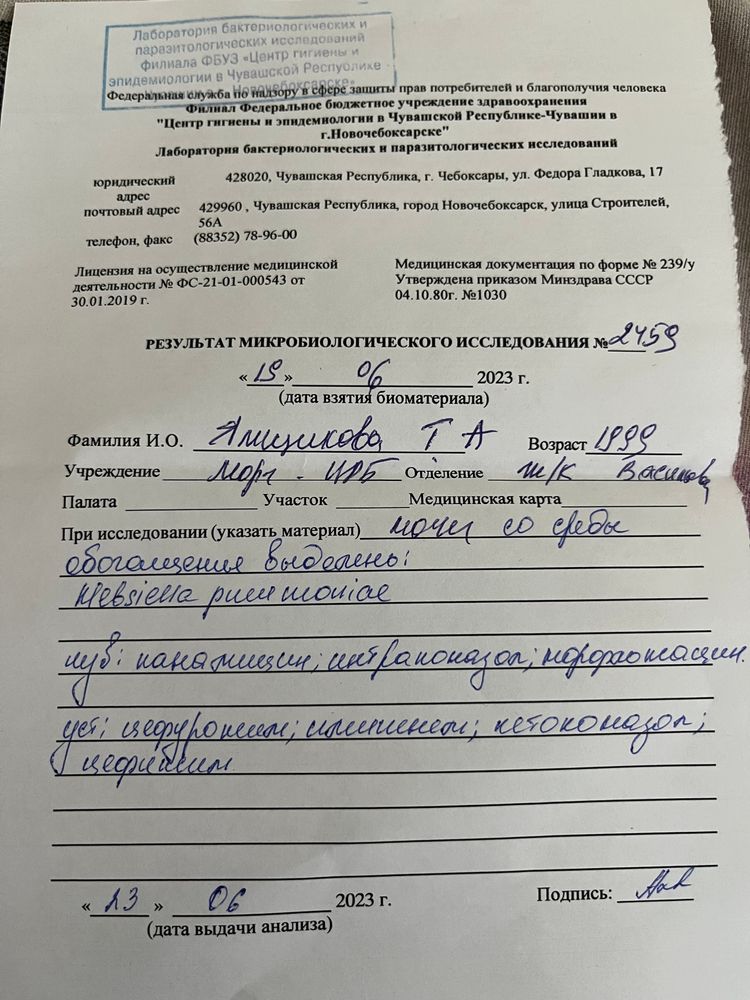 Лаборатория бактериологических и
паразитологических исследований
филиала ФБУЗ «Центр гигиены и
эпидемиологии в Чувашской Республике -
Новочебоксарске»
Федеральная служба по надзору в сфере защиты прав потребителей и благополучия человека
Филиал Федеральное бюджетное учреждение здравоохранения
"Центр гигиены и эпидемиологии в Чувашской Республике-Чувашии в
г.Новочебоксарске"
Лаборатория бактериологических и паразитологических исследований
юридический адрес 428020, Чувашская Республика, г. Чебоксары, ул. Федора Гладкова, 17
почтовый адрес 429960 , Чувашская Республика, город Новочебоксарск, улица Строителей,
56А
телефон, факс (88352) 78-96-00
Лицензия на осуществление медицинской
деятельности № ФС-21-01-000543 от
30.01.2019 г.
Медицинская документация по форме № 239/у
Утверждена приказом Минздрава СССР
04.10.80г. №1030
РЕЗУЛЬТАТ МИКРОБИОЛОГИЧЕСКОГО ИССЛЕДОВАНИЯ № 2459
« 19 » 06 2023 г.
(дата взятия биоматериала)
Фамилия И.О. Ямщикова Т А Возраст 1999
Учреждение Морг - ЦРБ Отделение ж/к
Палата Участок Медицинская карта
При исследовании (указать материал) мочи со среды
обогащения выделены:
Klebsiella pneumoniae
чув: канамицин; интраконазол; норфлоксацин.
уст: цефуроксим; имипинем; кетоконазол;
цефипим
« 23 » 06 2023 г.
Подпись:
(дата выдачи анализа)